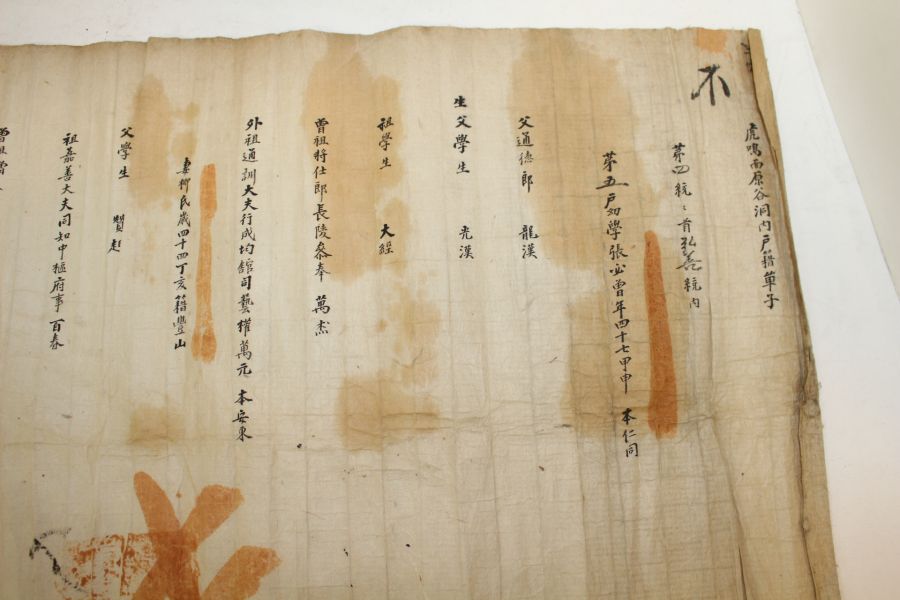 不
虎鳴面原谷洞內戶籍單子
第四統〻首弘善統內
第五戶幼學張必曾年四十七甲申 本仁同
父通德郎 龍漢
生父學生 光漢
祖學生 大經
曾祖將仕郎長陵參奉 萬杰
外祖通訓大夫行成均館司藝權萬元 本安東
妻柳氏歲四十四丁亥籍豊山
父學生 賢彪
祖嘉善大夫同知中樞府事百春
曾祖